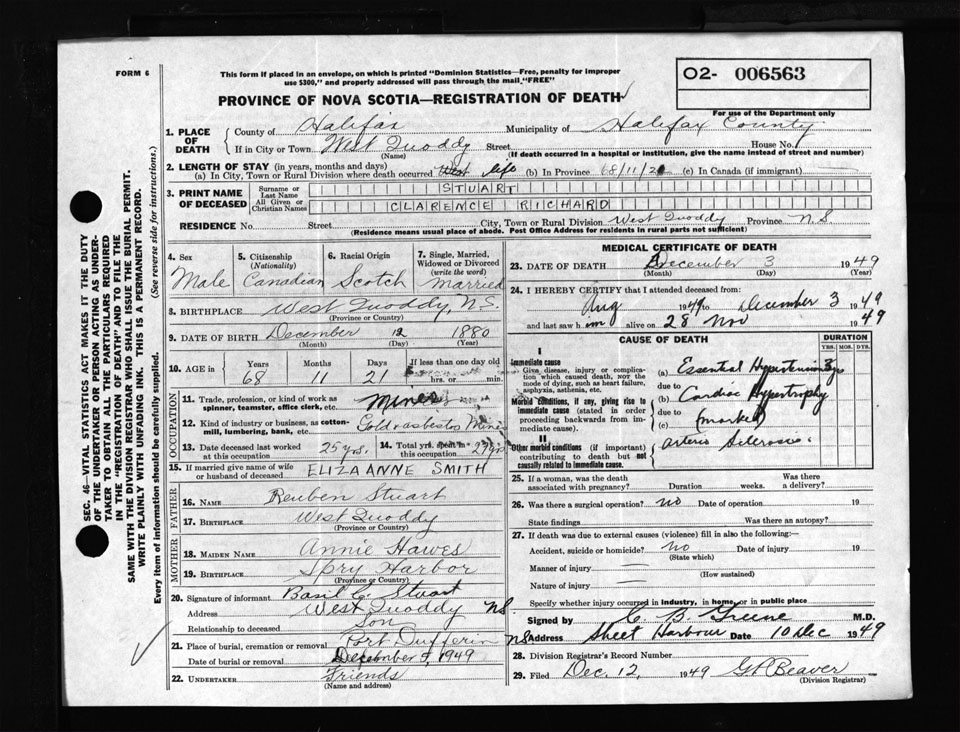 FORM 6
This form if placed in an envelope, on which is printed "Dominion Statistics—Free, penalty for improper
use $300," and properly addressed will pass through the mail "FREE"
O2- 006563
For use of the Department only
PROVINCE OF NOVA SCOTIA—REGISTRATION OF DEATH
1. PLACE OF DEATH
County of Halifax Municipality of Halifax County
If in City or Town West Quoddy Street House No.
(Name) (If death occurred in a hospital or institution, give the name instead of street and number)
2. LENGTH OF STAY (in years, months and days)
(a) In City, Town or Rural Division where death occurred life (b) In Province 68/11/21 (c) In Canada (if immigrant)
3. PRINT NAME OF DECEASED
Surname or Last Name STUART
All Given or Christian Names CLARENCE RICHARD
RESIDENCE No. Street City, Town or Rural Division West Quoddy Province N.S
(Residence means usual place of abode. Post Office Address for residents in rural parts not sufficient)
4. Sex Male
5. Citizenship (Nationality) Canadian
6. Racial Origin Scotch
7. Single, Married, Widowed or Divorced (write the word) Married
8. BIRTHPLACE West Quoddy, N.S.
(Province or Country)
9. DATE OF BIRTH December 12 1880
(Month) (Day) (Year)
10. AGE in Years 68 Months 11 Days 21 If less than one day old hrs. or min.
OCCUPATION
11. Trade, profession, or kind of work as spinner, teamster, office clerk, etc.
12. Kind of industry or business, as cotton-mill, lumbering, bank, etc. Gold & asbestos Mines
13. Date deceased last worked at this occupation 25 yrs.
14. Total yrs. spent in this occupation 27 yrs
15. If married give name of wife or husband of deceased ELIZA ANNE SMITH
FATHER
16. NAME Reuben Stuart
17. BIRTHPLACE West Quoddy
(Province or Country)
MOTHER
18. MAIDEN NAME Annie Hawes
19. BIRTHPLACE Spry Harbor
(Province or Country)
20. Signature of informant Basil C. Stuart
Address West Quoddy NS
Relationship to deceased Son
21. Place of burial, cremation or removal Port Dufferin NS
Date of burial or removal December 5, 1949
22. UNDERTAKER Friends
(Name and address)
MEDICAL CERTIFICATE OF DEATH
23. DATE OF DEATH December 3 1949
(Month) (Day) (Year)
24. I HEREBY CERTIFY that I attended deceased from:
Aug 1949 to December 3 1949
and last saw him alive on 28 Nov 1949
CAUSE OF DEATH
DURATION
YRS. MOS. DYS.
I
Immediate cause
Give disease, injury or complication which caused death, not the mode of dying, such as heart failure, asphyxia, asthenia, etc.
(a) Essential Hypertension
due to
Morbid conditions, if any, giving rise to immediate cause (stated in order proceeding backwards from immediate cause).
(b) Cardiac Hypertrophy
due to
(c) (marked)
II
Other morbid conditions (if important) contributing to death but not causally related to immediate cause.
arterio Sclerosis
25. If a woman, was the death associated with pregnancy? Duration weeks. Was there a delivery?
26. Was there a surgical operation? no Date of operation 19
State findings Was there an autopsy?
27. If death was due to external causes (violence) fill in also the following:—
Accident, suicide or homicide? no Date of injury 19
(State which)
Manner of injury —
(How sustained)
Nature of injury —
Specify whether injury occurred in industry, in home, or in public place
Signed by C. B. Greene M.D.
Address Sheet Harbour Date 10 Dec 1949
28. Division Registrar's Record Number
29. Filed Dec. 12, 1949 Beaver
(Division Registrar)
SEC. 46—VITAL STATISTICS ACT MAKES IT THE DUTY
OF THE UNDERTAKER OR PERSON ACTING AS UNDER-
TAKER TO OBTAIN ALL THE PARTICULARS REQUIRED
IN THE "REGISTRATION OF DEATH" AND TO FILE THE
SAME WITH THE DIVISION REGISTRAR WHO SHALL ISSUE THE BURIAL PERMIT.
WRITE PLAINLY WITH UNFADING INK. THIS IS A PERMANENT RECORD.
Every item of information should be carefully supplied. (See reverse side for instructions.)